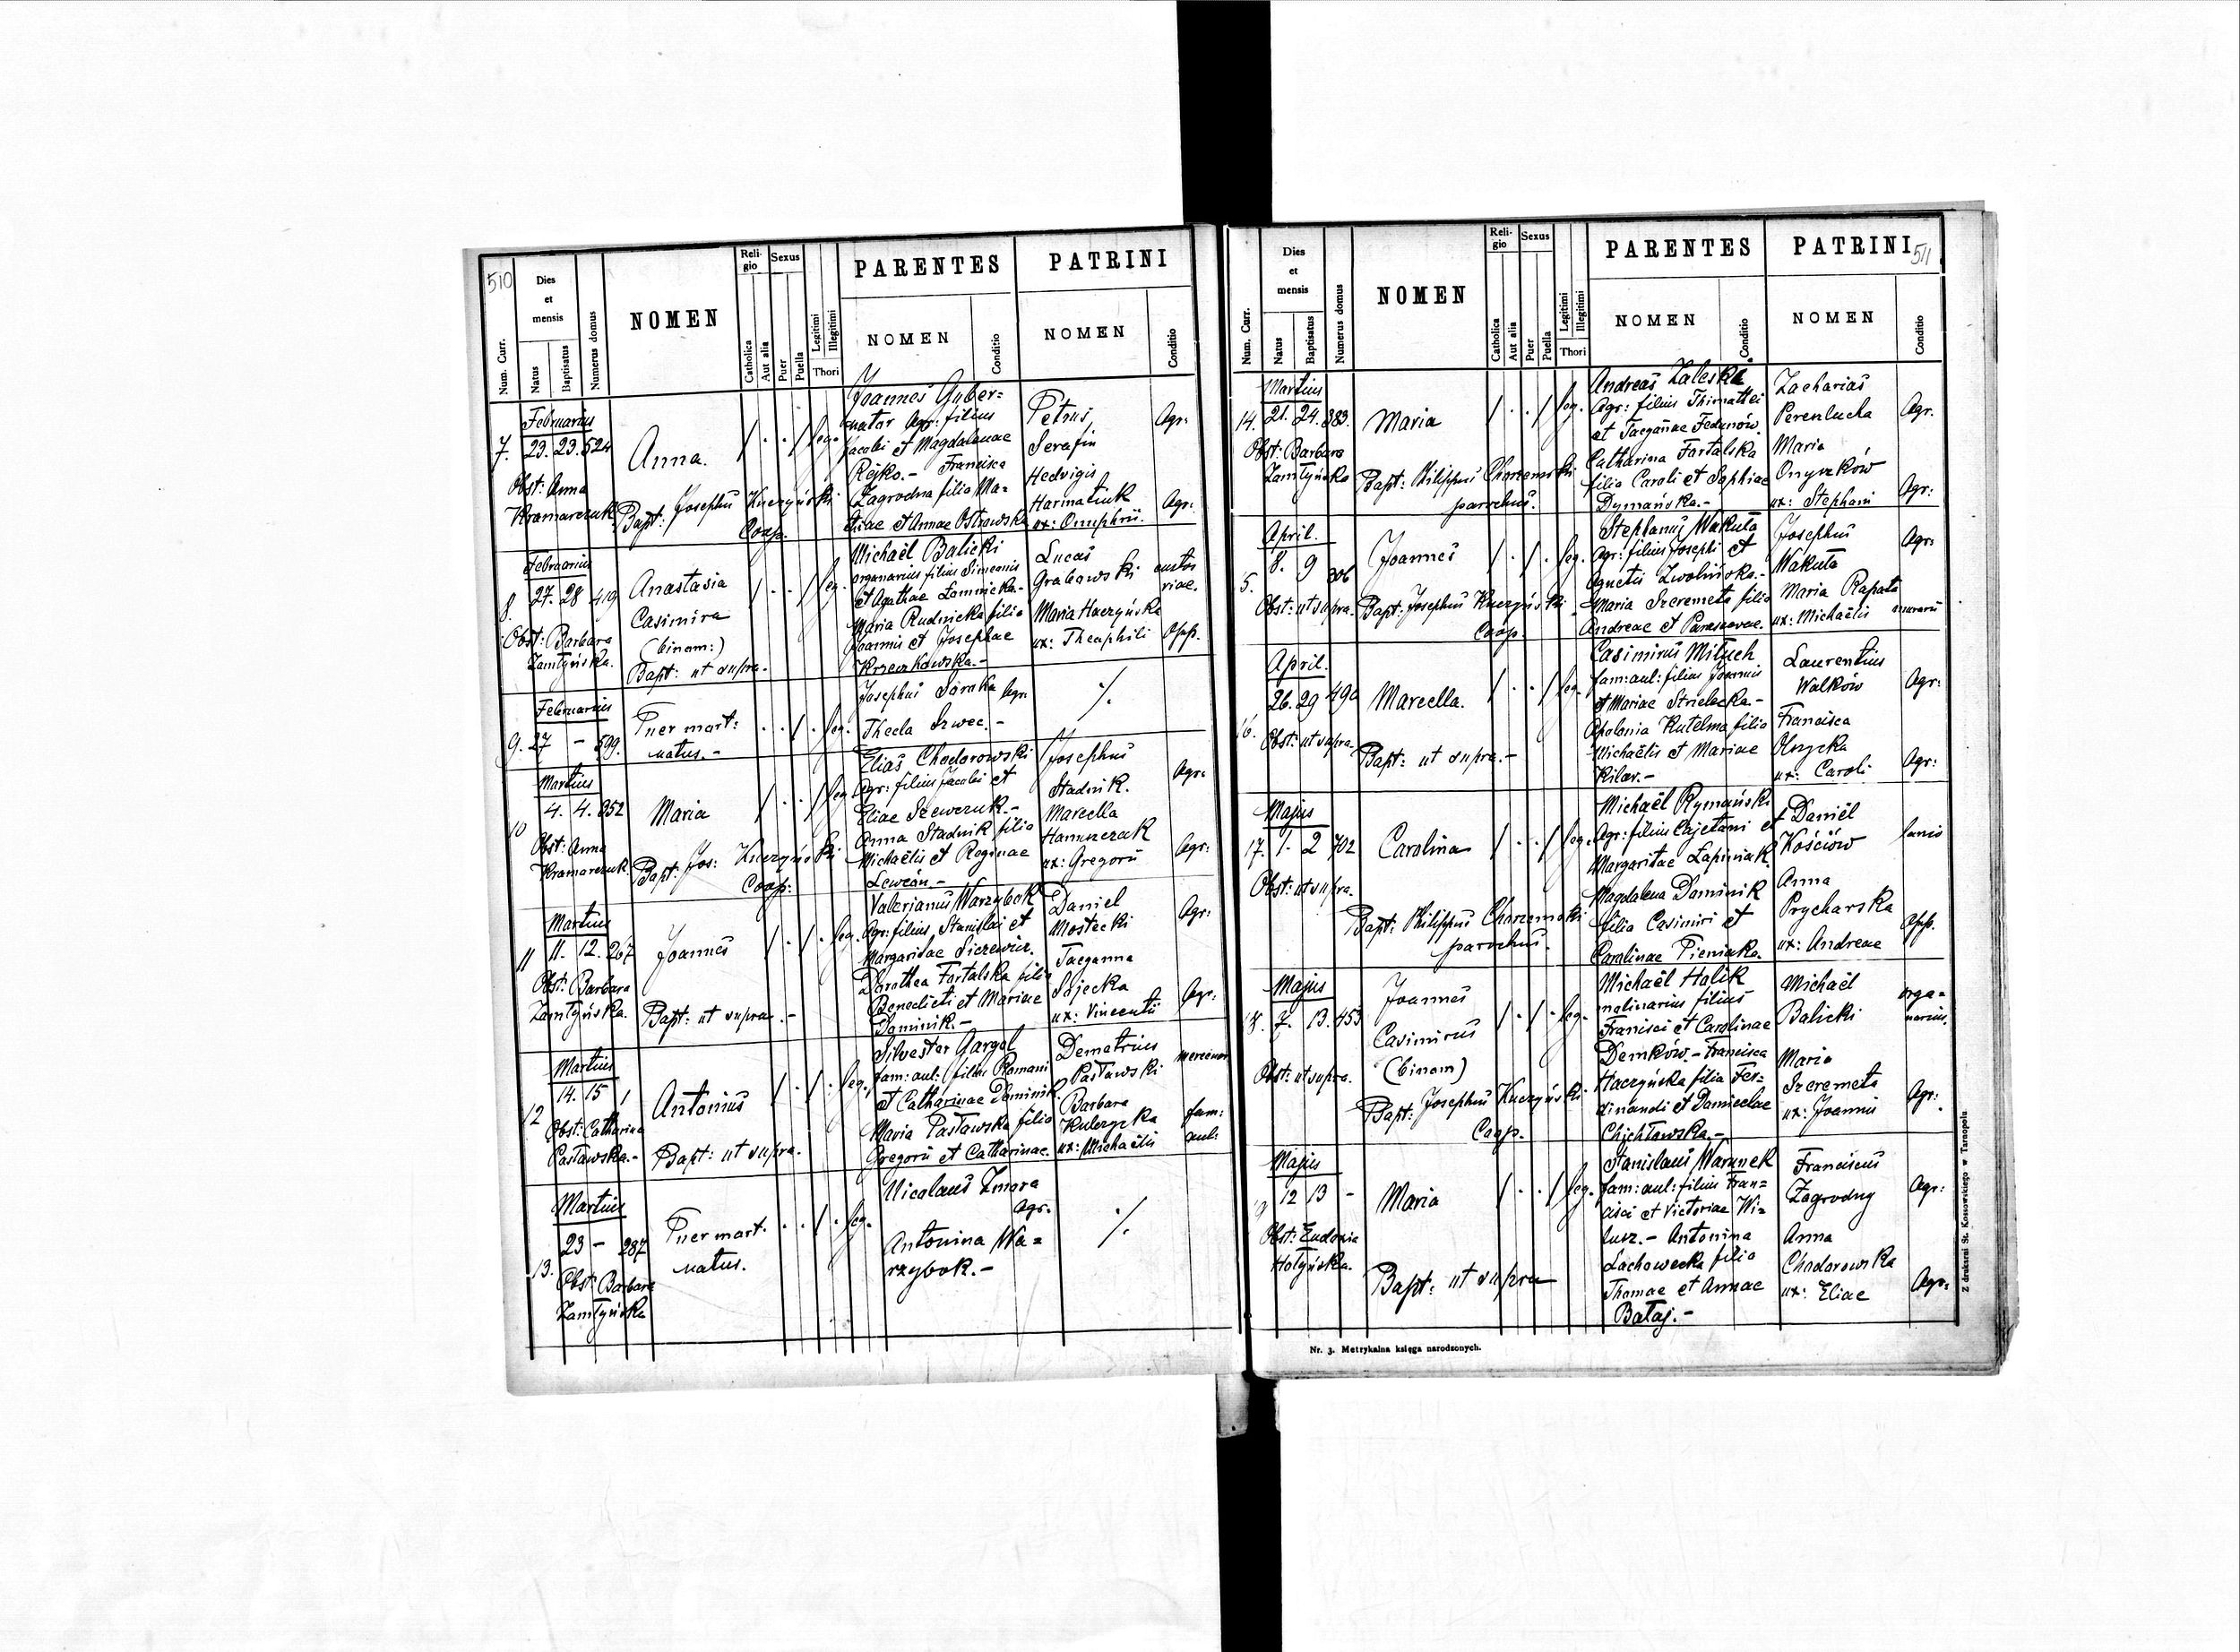 510
Num. Curr.
Dies et mensis
Natus
Baptisatus
Numerus domus
NOMEN
Religio
Catholica
Aut alia
Sexus
Puer
Puella
Legitimi
Illegitimi
Thori
PARENTES
NOMEN
Conditio
PATRINI
NOMEN
Conditio
Februarius
7. 23. 23. 524
Obst: Anna
Kramarczuk
Anna.
Bapt: Josephus Kuczyński
Coop.
/ . . / leg.
Joannes Guber=
nator Agr: filius
Jacobi et Magdalenae
Rejko.- Francisca
Zagrodna filia Ma=
thiae et Annae Ostrowska
Petrus
Serafin
Hedvigis
Harmatiuk
ux: Onuphrii.
Agr:
Agr:
Februarius
8. 27. 28 419
Obst: Barbara
Zamłyńska.
Anastasia
Casimira
(binom:)
Bapt: ut supra.-
/ . . / leg.
Michaël Balicki
organarius filius Simeonis
et Agathae Łominicka.-
Maria Rudnicka filia
Joannis et Josephae
Krzeczkowska.-
Lucas
Grabowski
Maria Haczyńska
ux: Theophili
Opp.
Februarius
9. 27 - 599.
Puer mort:
natus.-
. . / . leg.
Josephus Soroka Agr:
Thecla Szwec.-
./.
Martius
10 4. 4. 352
Obst: Anna
Kramarczuk
Maria
Bapt: Jos: Kuczyński
Coop:
/ . . / leg.
Elias Chodorowski
Agr: filius Jacobi et
Eliae Szewczuk.-
Anna Stadnik filia
Michaëlis et Reginae
Lewcón.-
Josephus
Stadnik.
Marcella
Hamurzak
ux: Gregorii
Agr:
Agr:
Martius
11 11. 12. 267
Obst: Barbara
Zamłyńska.
Joannes
Bapt: ut supra.-
/ . / . leg.
Valerianus Warzybok
Agr: filius Stanislai et
Margaritae Siczewicz.
Dorothea Fortalska filia
Benedicti et Mariae
Dominik.-
Daniel
Mostecki
Taeganna
Sojecka
ux: Vincentii
Agr:
Agr:
Martius
12 14. 15 1
Obst: Catharina
Pasławska.-
Antonius
Bapt: ut supra.
/ . / . leg.
Silvester Gargol
fam: aul: filius Romani
et Catharinae Dominik.
Maria Pasławska filia
Gregorii et Catharinae.
Demetrius
Pasławski
Barbara
Kulczycka
ux: Michaëlis
fam:
aul:
Martius
13. 23 - 287
Obst: Barbara
Zamłyńska
Puer mort.
natus.
. . / . leg.
Nicolaus Zmora
Agr.
Antonina Wa=
rzybok.-
./.
511
Num. Curr.
Dies et mensis
Natus
Baptisatus
Numerus domus
NOMEN
Religio
Catholica
Aut alia
Sexus
Puer
Puella
Legitimi
Illegitimi
Thori
PARENTES
NOMEN
Conditio
PATRINI
NOMEN
Conditio
Martius
14. 21. 24. 383.
Obst: Barbara
Zamłyńska
Maria
Bapt: Philippus Chorzemski
parochus.
/ . . / leg.
Andreas Zaleski
Agr: filius Thimothei
et Taegannae Fedunów.
Catharina Fortalska
filia Caroli et Sophiae
Dymańska.-
Zacharias
Perenlucha
Maria
Onyszków
ux: Stephani
Agr.
Agr:
April.
5. 8. 9 306
Obst: ut supra.
Joannes
Bapt: Josephus Kuczyński
Coop.
/ . / . leg.
Stephanus Wakuta
Agr: filius Josephi et
Agnetis Zwolińska.-
Maria Szeremeta filia
Andreae et Parascevae.
Josephus
Wakuta
Maria Rapata
ux: Michaëlis
Agr:
murarii
April.
16. 26. 29 490
Obst: ut supra.
Marcella.
Bapt: ut supra.-
/ . . / leg.
Casimirus Mituch
fam: aul: filius Joannis
et Mariae Strielecka.-
Apolonia Kutelma filia
Michaëlis et Mariae
Kilar.-
Laurentius
Walków
Francisca
Olszycka
ux: Caroli
Agr:
Agr:
Majus
17. 1. 2 702
Obst: ut supra.
Carolina
Bapt: Philippus Chorzemski
parochus.
/ . . / leg.
Michaël Rymański
Agr: filius Cajetani et
Margaritae Łapiniak.
Magdalena Dominik
filia Casimiri et
Carolinae Pieniaka.
Daniël
Kościów
Anna
Prycharska
ux: Andreae
lanio
Opp.
Majus
18. 7. 13. 453
Obst: ut supra.
Joannes
Casimirus
(binom)
Bapt: Josephus Kuczyński
Coop.
/ . / . leg.
Michaël Halik
molinarius filius
Francisci et Carolinae
Demków.- Francisca
Haczyńska filia Fer=
dinandi et Danielae
Chichławska.-
Michaël
Balicki
Maria
Szeremeta
ux: Joannis
orga=
narius.
Agr:
Majus
12 13 -
Obst: Eudoxia
Hołyńska.
Maria
Bapt: ut supra
/ . . / leg.
Stanislaus Warunek
fam: aul: filius Fran=
cisci et Victoriae Wi=
lusz.- Antonina
Lachowecka filia
Thomae et Annae
Bataj.-
Franciscus
Zagrodny
Anna
Chodorowska
ux: Eliae
Agr:
Agr:
Nr. 3. Metrykalna księga narodzonych.
Z drukarni St. Kossowskiego w Tarnopolu